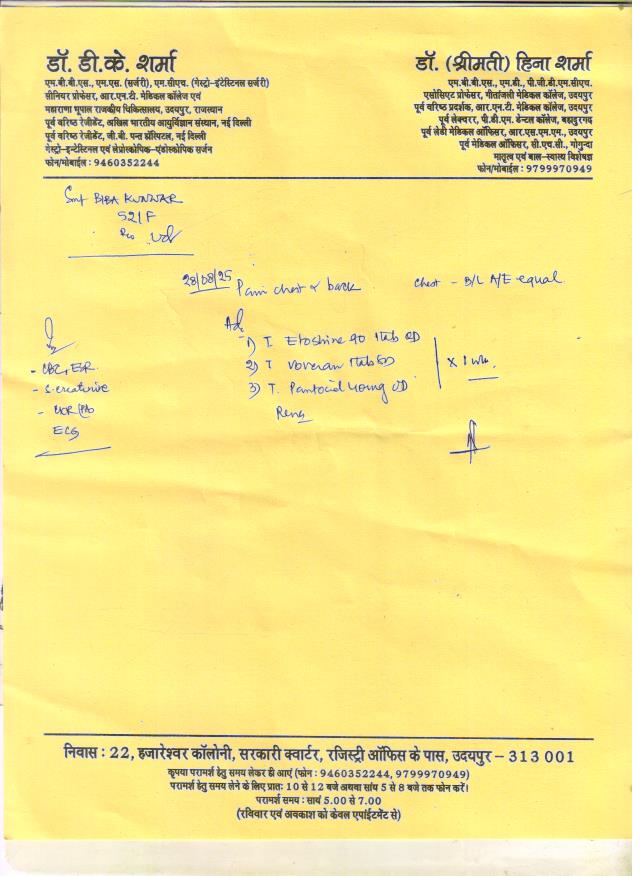 डॉ. डी.के. शर्मा
एम.बी.बी.एस., एम.एस. (सर्जरी), एम.सीएच. (गेस्ट्रो-इंटेस्टिनल सर्जरी)
सीनियर प्रोफेसर, आर.एन.टी. मेडिकल कॉलेज एवं
महाराणा भूपाल राजकीय चिकित्सालय, उदयपुर, राजस्थान
पूर्व वरिष्ठ रेजीडेंट, अखिल भारतीय आयुर्विज्ञान संस्थान, नई दिल्ली
पूर्व वरिष्ठ रेजीडेंट, जी.बी. पन्त हॉस्पिटल, नई दिल्ली
गेस्ट्रो-इन्टेस्टिनल एवं लेप्रोस्कोपिक-एंडोस्कोपिक सर्जन
फोन/मोबाईल : 9460352244
डॉ. (श्रीमती) हिना शर्मा
एम.बी.बी.एस., एम.डी., पी.जी.डी.एम.सीएच.
एसोसिएट प्रोफेसर, गीतांजली मेडिकल कॉलेज, उदयपुर
पूर्व वरिष्ठ प्रदर्शक, आर.एन.टी. मेडिकल कॉलेज, उदयपुर
पूर्व लेक्चरर, पी.डी.एम. डेन्टल कॉलेज, बहादुरगढ़
पूर्व लेडी मेडिकल ऑफिसर, आर.एस.एम.एम., उदयपुर
पूर्व मेडिकल ऑफिसर, सी.एच.सी., गोगुन्दा
मातृत्व एवं बाल-स्वास्थ्य विशेषज्ञ
फोन/मोबाईल : 9799970949
Smt BIBA KUNWAR
52/F
R/o Ud
28/08/25 Pain chest & back
Chest - B/L A/E equal
Adv
1) T. Etoshine 90 1tab OD
2) T Voveran 1tab
3) T. Pantocid 40mg OD
x 1 wk
- CBC, ESR
- S. creatinine
ECG
निवास : 22, हजारेश्वर कॉलोनी, सरकारी क्वार्टर, रजिस्ट्री ऑफिस के पास, उदयपुर – 313 001
कृपया परामर्श हेतु समय लेकर ही आएं (फोन : 9460352244, 9799970949)
परामर्श हेतु समय लेने के लिए प्रातः 10 से 12 बजे अथवा सायं 5 से 8 बजे तक फोन करें।
परामर्श समय : सायं 5.00 से 7.00
(रविवार एवं अवकाश को केवल एपांईटमेंट से)